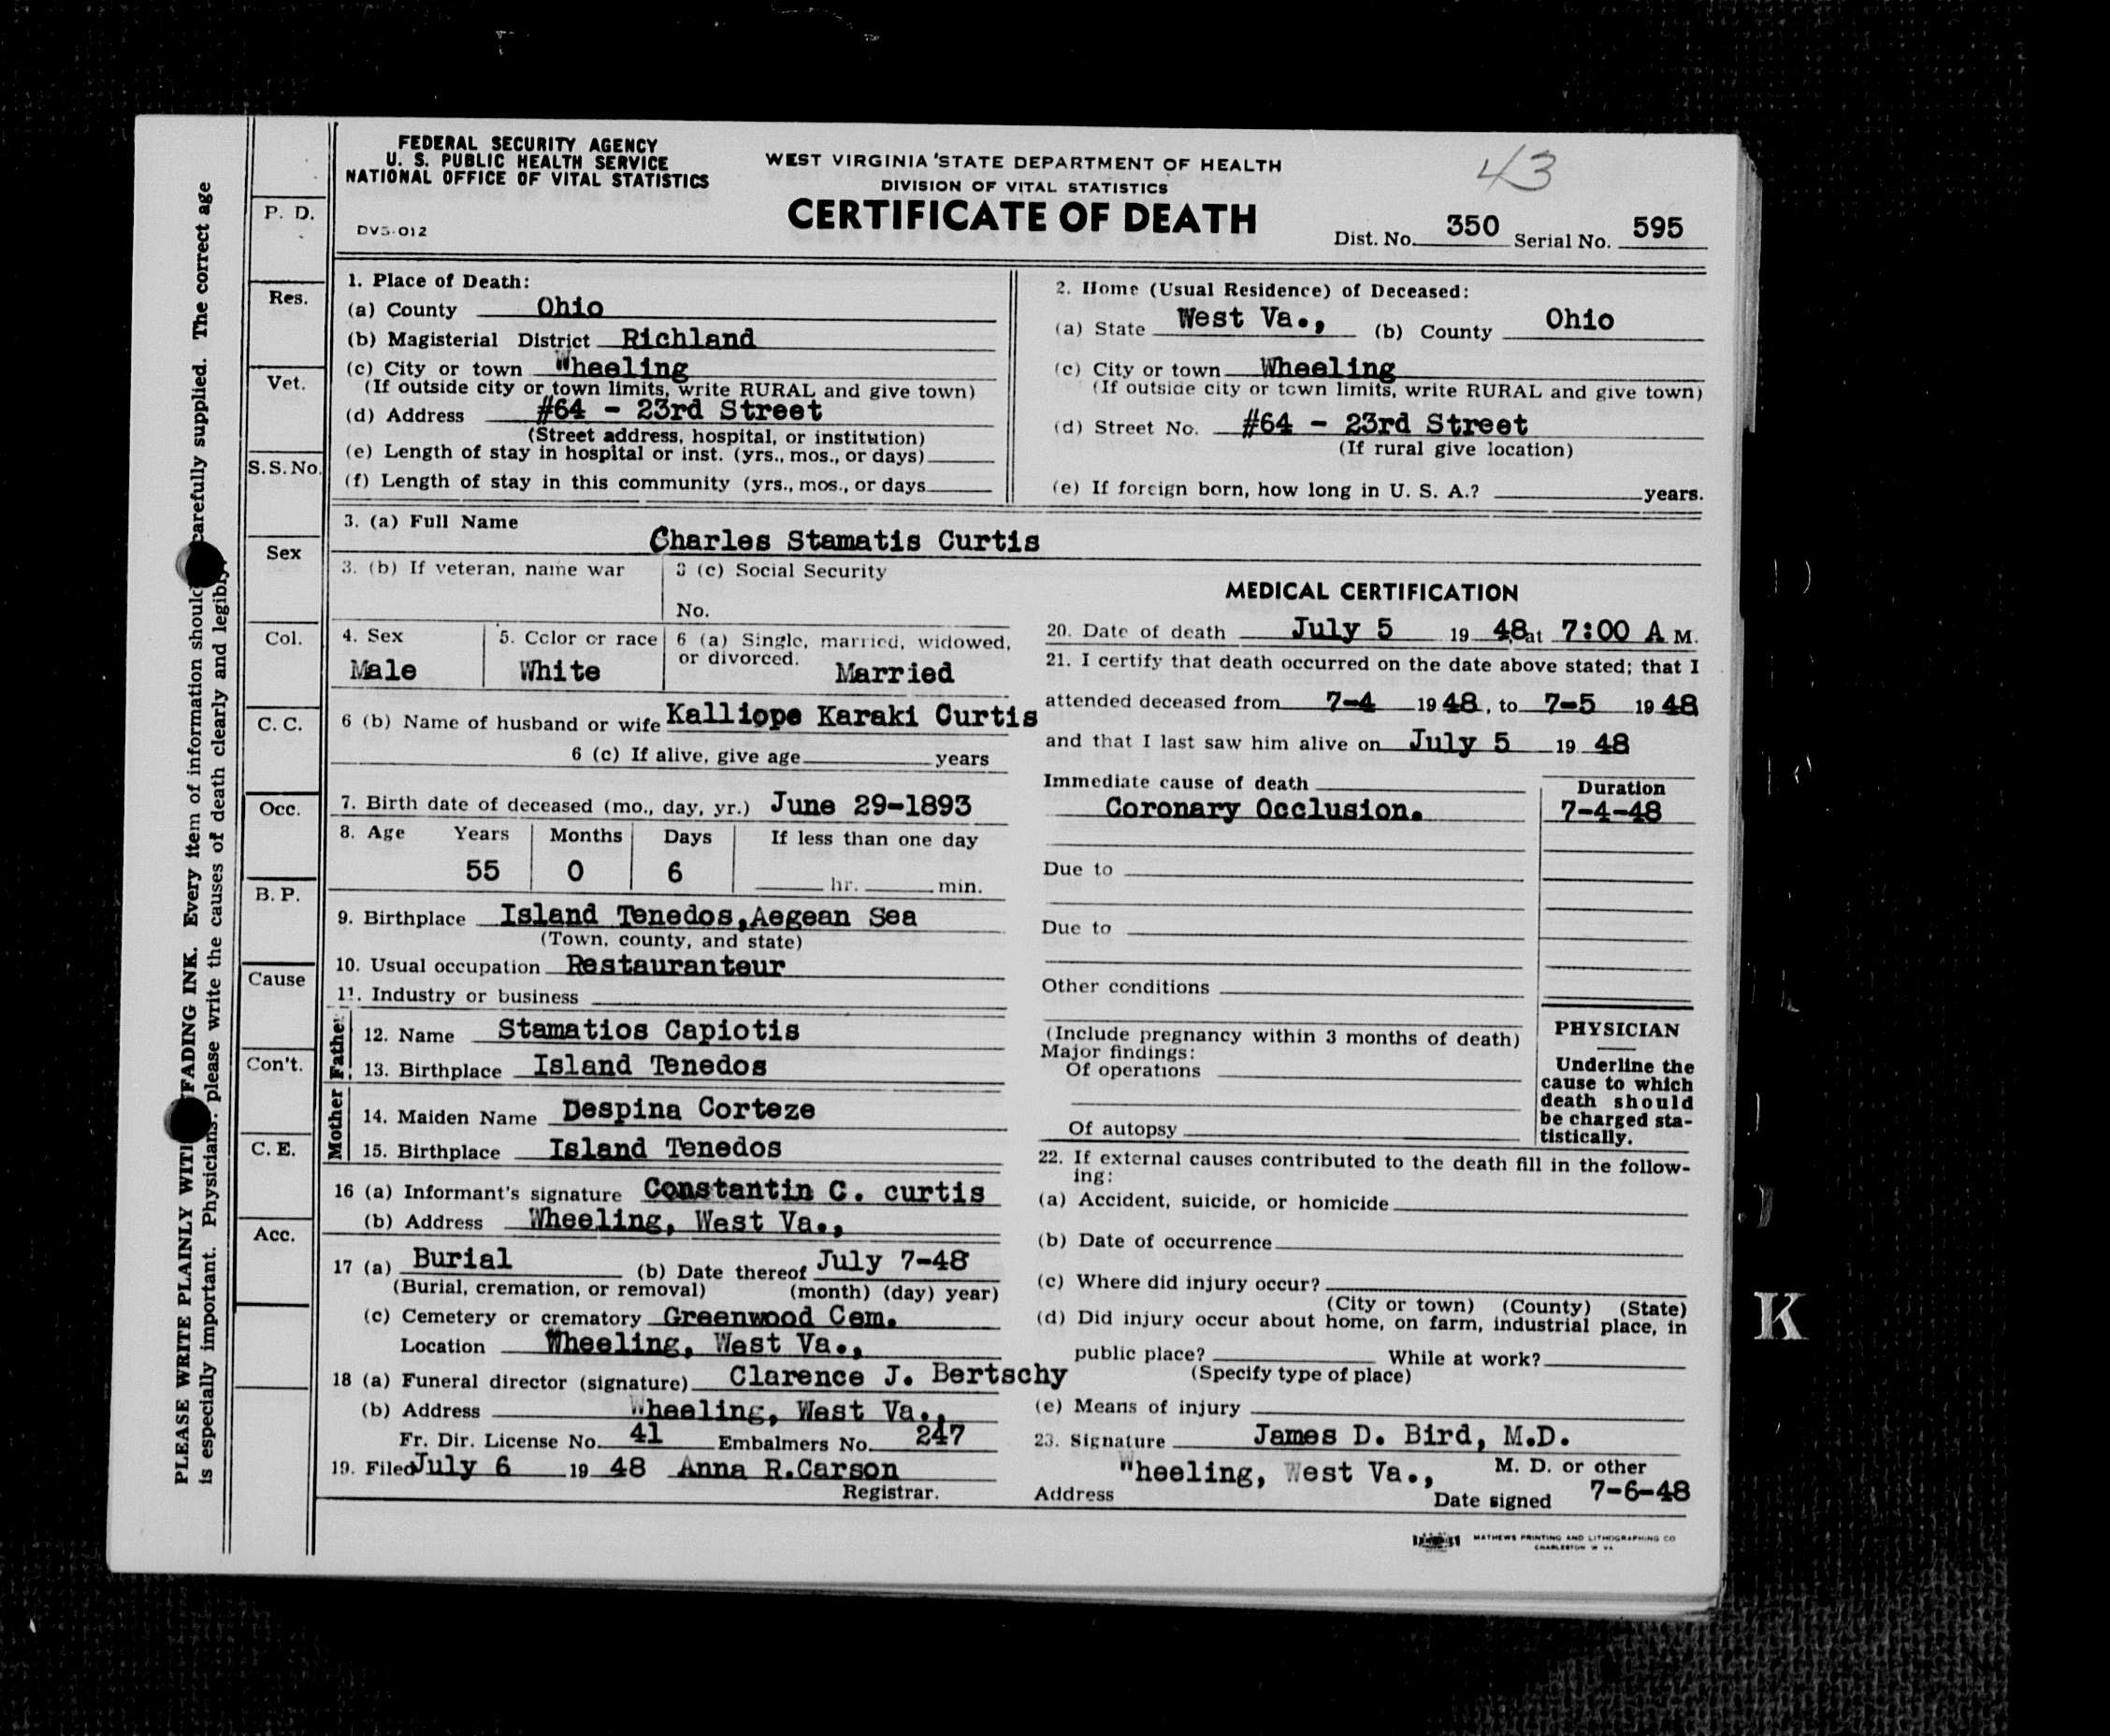 FEDERAL SECURITY AGENCY
U. S. PUBLIC HEALTH SERVICE
NATIONAL OFFICE OF VITAL STATISTICS
DVS-012
WEST VIRGINIA STATE DEPARTMENT OF HEALTH
DIVISION OF VITAL STATISTICS
CERTIFICATE OF DEATH
43
Dist. No. 350 Serial No. 595
PLEASE WRITE PLAINLY WITH UNFADING INK. Every item of information should carefully supplied. The correct age
is especially important. Physicians: please write the causes of death clearly and legibly.
P. D.
Res.
Vet.
S.S.No.
Sex
Col.
C. C.
Occ.
B. P.
Cause
Con't.
C. E.
Acc.
1. Place of Death:
(a) County Ohio
(b) Magisterial District Richland
(c) City or town Wheeling
(If outside city or town limits, write RURAL and give town)
(d) Address #64 - 23rd Street
(Street address, hospital, or institution)
(e) Length of stay in hospital or inst. (yrs., mos., or days)
(f) Length of stay in this community (yrs., mos., or days
2. Home (Usual Residence) of Deceased:
(a) State West Va., (b) County Ohio
(c) City or town Wheeling
(If outside city or town limits, write RURAL and give town)
(d) Street No. #64 - 23rd Street
(If rural give location)
(e) If foreign born, how long in U. S. A.? years.
3. (a) Full Name
Charles Stamatis Curtis
3. (b) If veteran, name war
3 (c) Social Security
No.
4. Sex
Male
5. Color or race
White
6 (a) Single, married, widowed,
or divorced. Married
6 (b) Name of husband or wife Kalliope Karaki Curtis
6 (c) If alive, give age years
7. Birth date of deceased (mo., day, yr.) June 29-1893
8. Age Years Months Days If less than one day
55 0 6 hr. min.
9. Birthplace Island Tenedos, Aegean Sea
(Town, county, and state)
10. Usual occupation Restauranteur
11. Industry or business
Father
12. Name Stamatios Capiotis
13. Birthplace Island Tenedos
Mother
14. Maiden Name Despina Corteze
15. Birthplace Island Tenedos
16 (a) Informant's signature Constantin C. curtis
(b) Address Wheeling, West Va.,
17 (a) Burial (b) Date thereof July 7-48
(Burial, cremation, or removal) (month) (day) year)
(c) Cemetery or crematory Greenwood Cem.
Location Wheeling, West Va.,
18 (a) Funeral director (signature) Clarence J. Bertschy
(b) Address Wheeling, West Va.,
Fr. Dir. License No. 41 Embalmers No. 247
19. Filed July 6 19 48 Anna R.Carson
Registrar.
MEDICAL CERTIFICATION
20. Date of death July 5 19 48 at 7:00 A M.
21. I certify that death occurred on the date above stated; that I
attended deceased from 7-4 19 48, to 7-5 19 48
and that I last saw him alive on July 5 19 48
Immediate cause of death
Coronary Occlusion.
Duration
7-4-48
Due to
Due to
Other conditions
(Include pregnancy within 3 months of death)
Major findings:
Of operations
Of autopsy
PHYSICIAN
Underline the
cause to which
death should
be charged sta-
tistically.
22. If external causes contributed to the death fill in the follow-
ing:
(a) Accident, suicide, or homicide
(b) Date of occurrence
(c) Where did injury occur?
(City or town) (County) (State)
(d) Did injury occur about home, on farm, industrial place, in
public place? While at work?
(Specify type of place)
(e) Means of injury
23. Signature James D. Bird, M.D.
M. D. or other
Address Wheeling, West Va., Date signed 7-6-48
MATHEWS PRINTING AND LITHOGRAPHING CO
CHARLESTON W VA
K